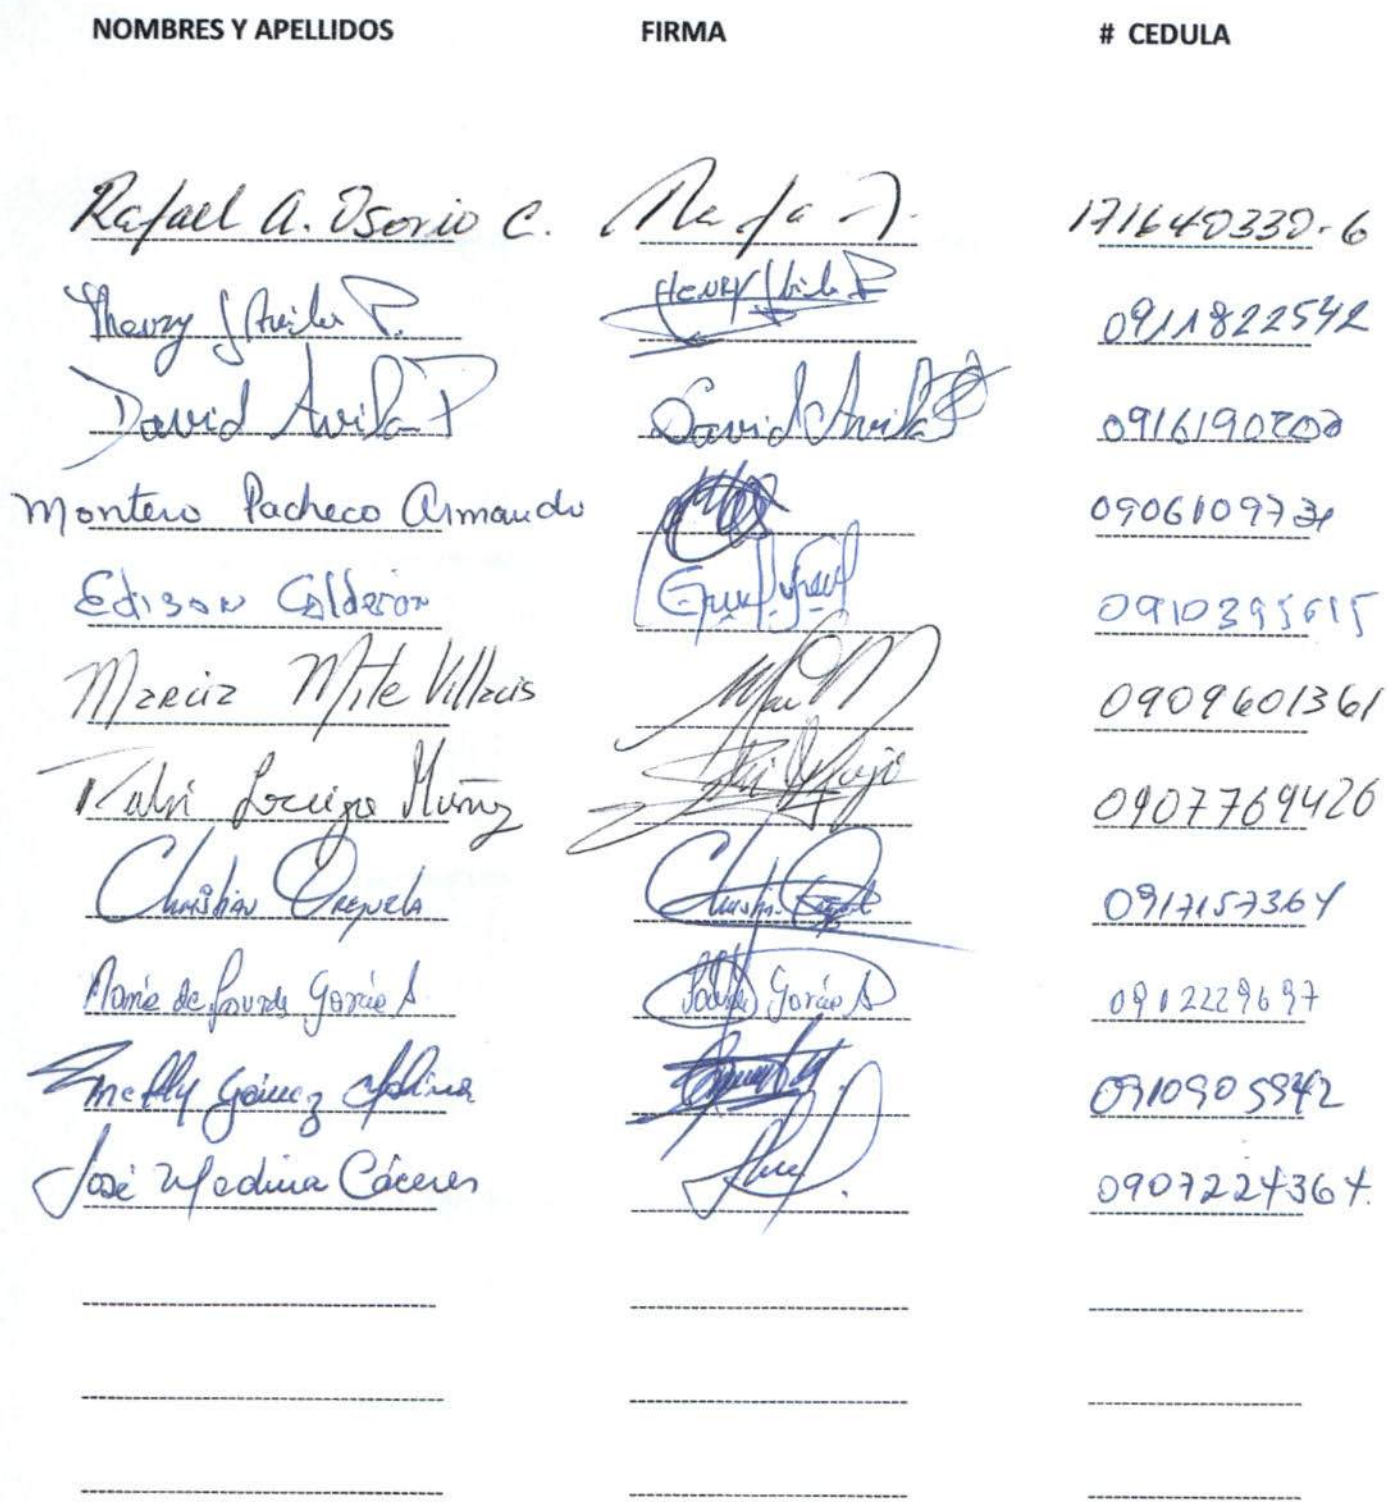 NOMBRES Y APELLIDOS FIRMA # CEDULA
Rafael A. Osorio C. Rafa A. 171640330-6
Henry Avila P. Henry Avila P 0911822542
David Avila P David Avila P 0916190202
Montero Pacheco Armando 090610973
Edison Calderon 0910395615
Marcia Mite Villacis 0909601361
Muñoz 0907769426
Christian Orejuela Christian 0917157364
Maria de Lourdes Garcia A Garcia A 0912229697
Gómez Molina 0910905942
José Medina Cáceres 0907224364.